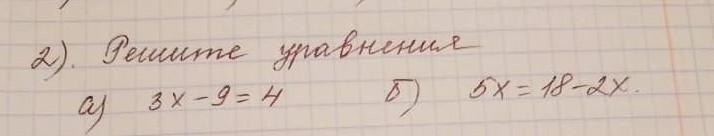 2). Решите уравнения
а) 3x-9=4 б) 5x=18-2x.